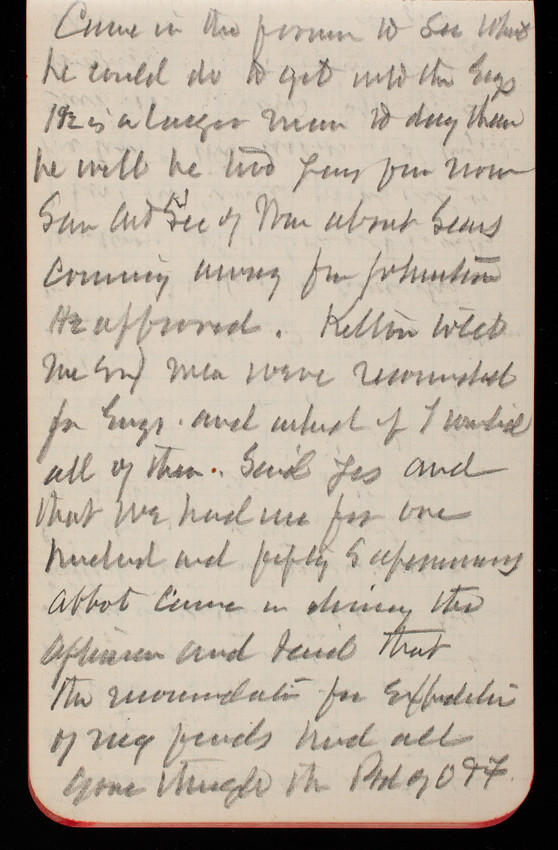 Came in the forenoon to see what
he could do to get into the Engs
He is a larger man to day than
he will be two years from now
Saw Asst Sec of War about Sears
coming away for
He approved. Kelton told
me Eng men were recruited
for Engs. and asked if I wanted
all of them. Said yes and
that we had use for one
hundred and fifty
Abbot came in during the
afternoon and said that
the recommendation for
of had all
gone through the Bd of O & F.